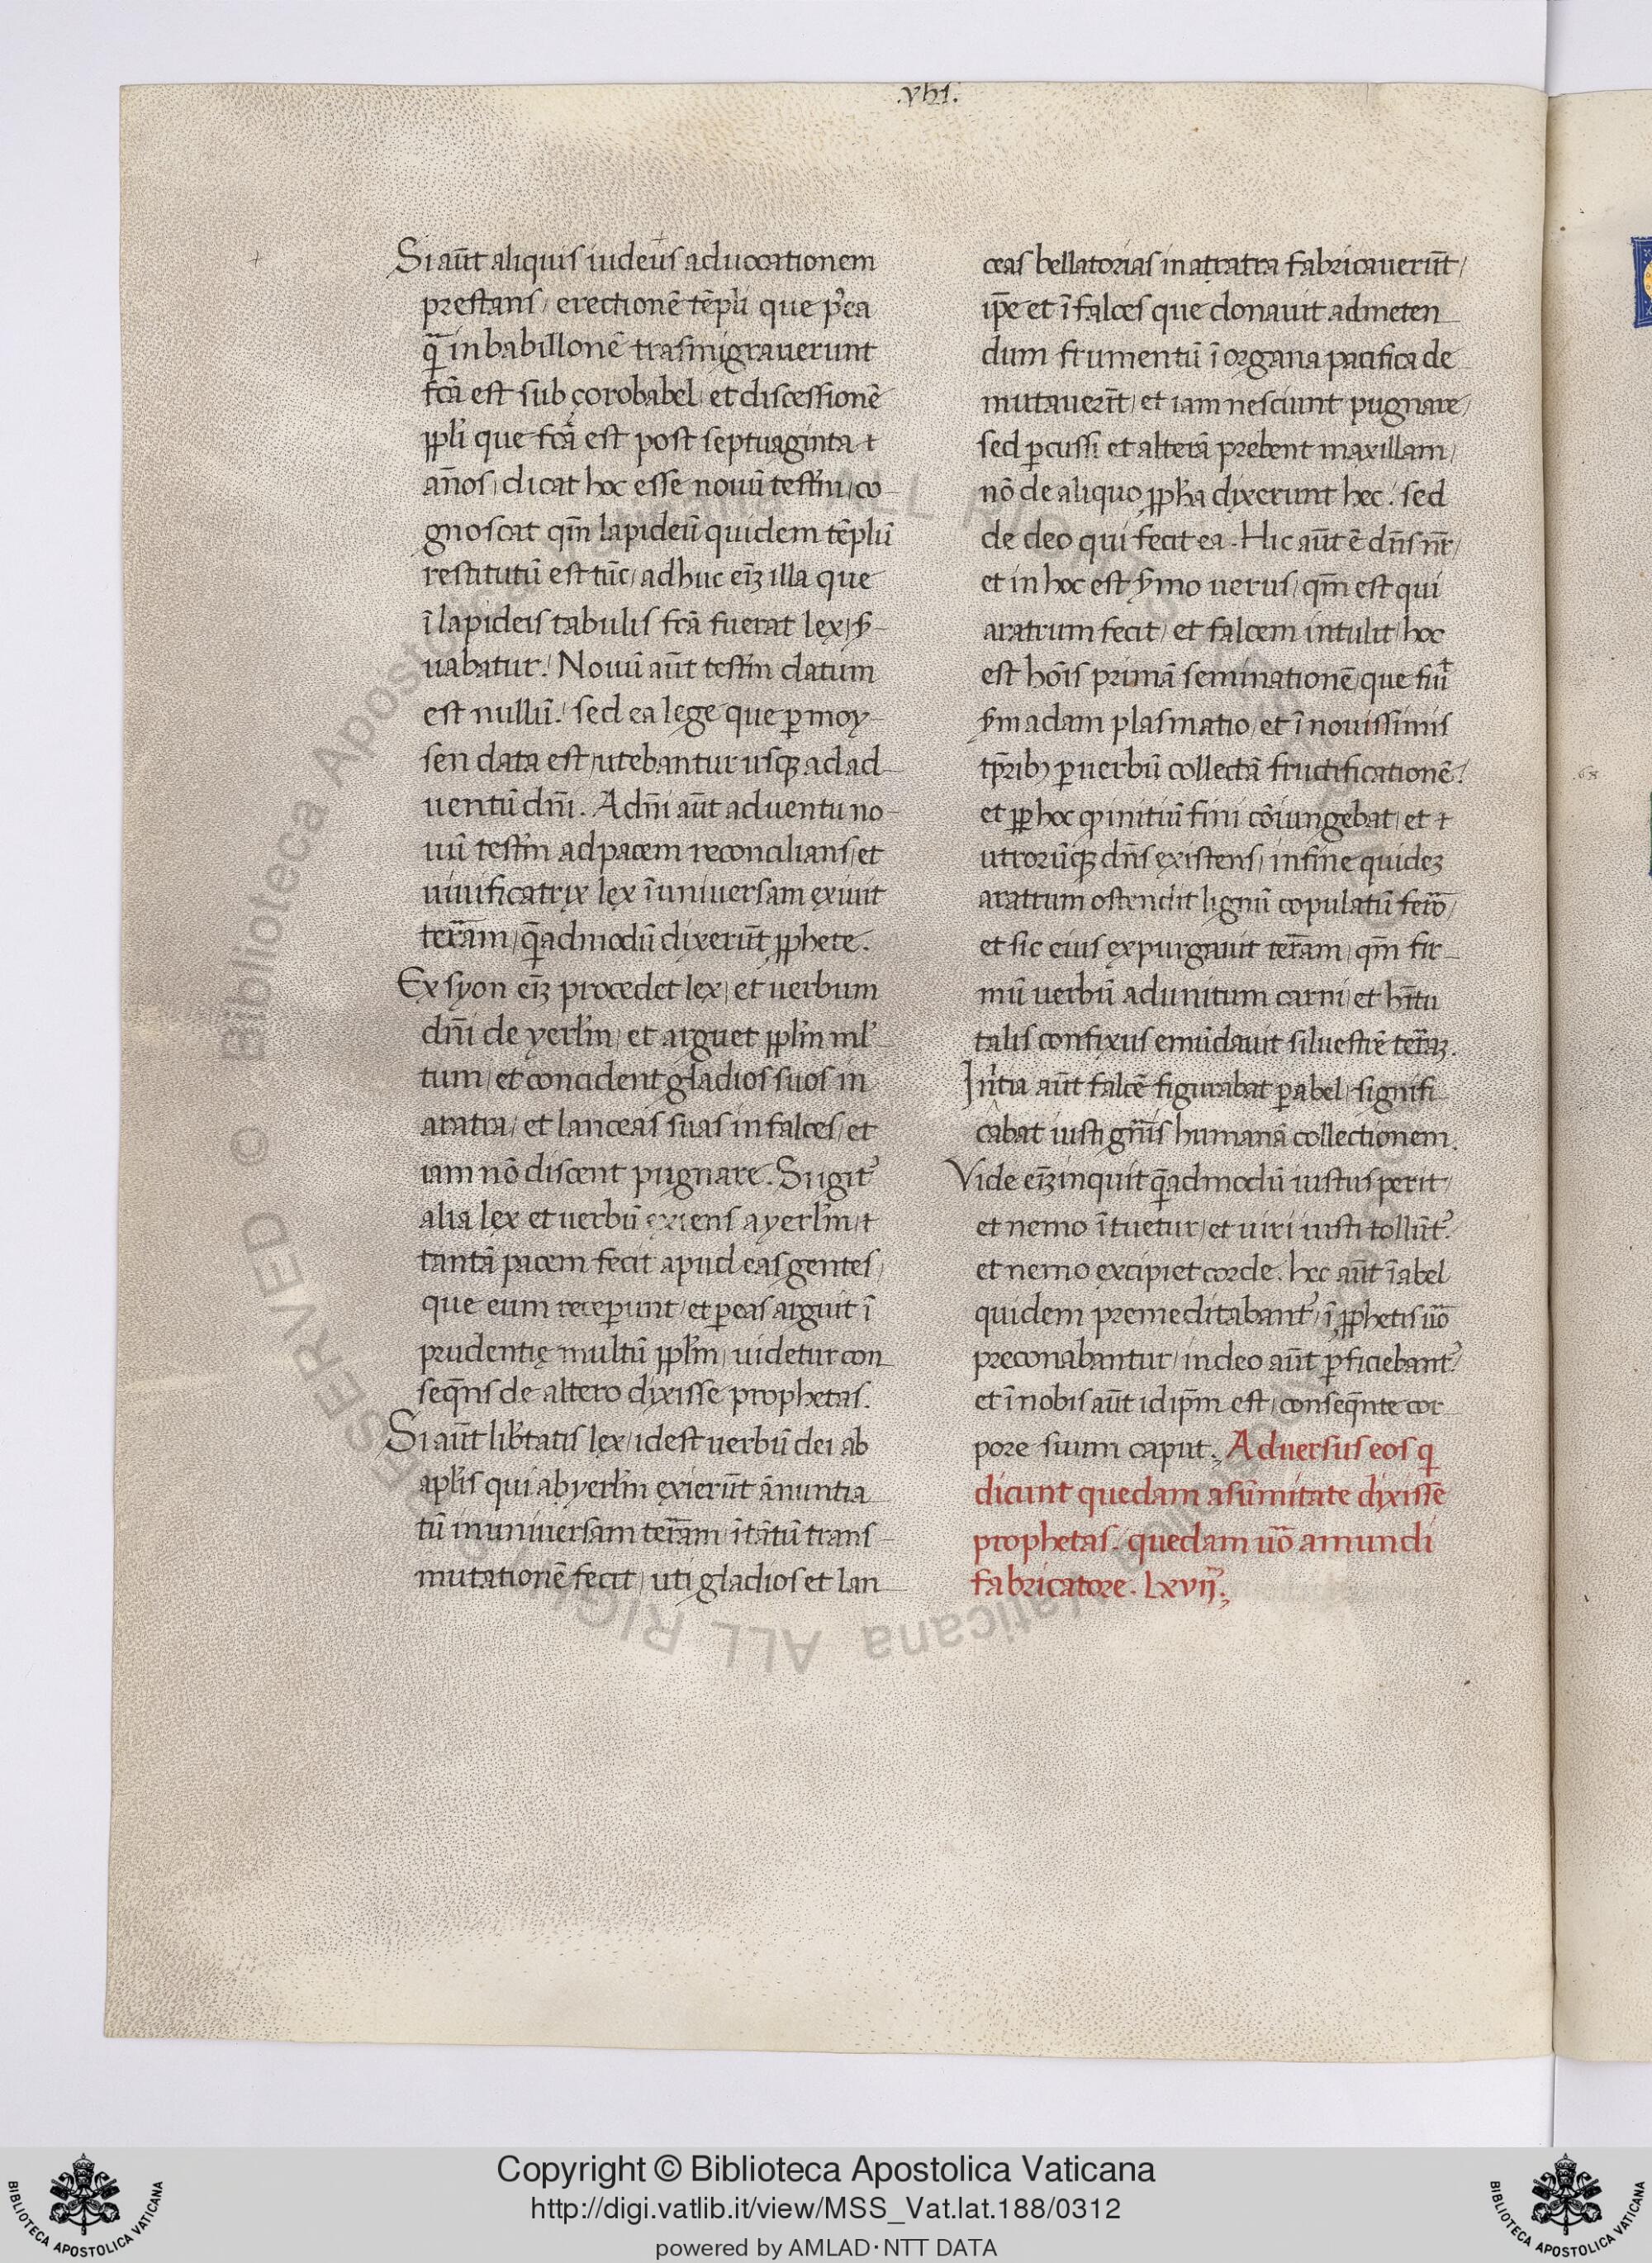 .vhſ.
Si aūt aliquis iudeus aduocationem
prestans/ erectionē tēpli que p̱ ea
q̄ in babillonē trasmigrauerunt
fcā est sub çorobabel/ et discessionē
ppli que fcā est post septuaginta ⁊
ān̄os/ dicat hoc esse nouū testm̄/ co
gnoscat qm̄ lapideū quidem tēplū
restitutū est tūc/ adhuc eīꝫ illa que
ī lapideis tabulis fcā fuerat lex/ ẜ
uabatur! Nouū aūt testm̄ datum
est nullū! sed ea lege que ꝑ moy
sen data est/ utebantur usqꝫ ad ad
uentū dn̄i. Adn̄i aūt aduentu no
uū testm̄ ad pacem reconcilians/ et
uiuificatrix lex ī uniuersam exiuit
terr̄am/ q̄admodū dixerūt ꝓphete.
Ex syon eīꝫ procedet lex/ et uerbum
dn̄i de yerłm/ et arguet ppłm ml̕
tum/ et concident gladios suos in
aratra/ et lanceas suas in falces/ et
iam nō discent pugnare. Si igit᷑
alia lex et uerbū exiens a yerłm/ ⁊
tantā pacem fecit apud eas gentes/
que eum receꝑunt/ et ꝑ eas arguit ī
prudentię multū ppłm/ uidetur con
seq̄ns de altero dixisse prophetas.
Si aūt lib̕tatis lex/ idest uerbū dei ab
apłis qui ab yerłm exierūt ānuntia
tū in uniuersam terr̄am/ ī tātū trans
mutationē fecit/ uti gladios et lan
ceas bellatorias in atratra fabricauerūt/
ip̄e et ī falces que donauit ad meten
dum frumentū ī organa pacifica de
mutauerūt/ et iam nesciunt pugnare/
sed ꝑcussi et alterā prebent maxillam/
nō de aliquo ꝓpha dixerunt hec! sed
de deo qui fecit ea. Hic aūt ē dn̄s nr̄/
et in hoc est ẜmo uerus/ qm̄ est qui
aratrum fecit/ et falcem intulit/ hoc
est hōis primā seminationē/ que fuit
ẜm adam plasmatio/ et ī nouissimis
tp̄ribꝫ ꝑ uerbū collectā fructificationē!
et ꝓp hoc ꝙ initiū fini cōiungebat/ et ⁊
utrorūqꝫ dn̄s existens/ in fine quideꝫ
aratrum ostendit lignū copulatū ferr̄o/
et sic eius expurgauit terr̄am/ qm̄ fir
mū uerbū adunitum carni/ et hītu
talis confixus emūdauit siluestrē terr̄aꝫ.
Int̕ia aūt falcē figurabat ꝑ abel/ signifi
cabat iusti gn̄is humanā collectionem.
Vide eīꝫ inquit q̄admodū iustus perit/
et nemo ītuetur/ et uiri iusti tollūt᷑!
et nemo excipiet corde. hec aūt ī abel
quidem premeditabant᷑/ ī ꝓphetis uō
preconabantur/ in deo aūt ꝑficiebant᷑!
et ī nobis aūt idip̄m est/ conseq̄nte cor
pore suum caput. Aduersus eos q̄
dicunt quedam a sūmitate dixissē
prophetas. quedam uō a mundi
fabricatore. Lxvij.
Copyright © Biblioteca Apostolica Vaticana
http://digi.vatlib.it/view/MSS_Vat.lat.188/0312
powered by AMLAD·NTT DATA
BIBLIOTECA APOSTOLICA VATICANA
BIBLIOTECA APOSTOLICA VATICANA